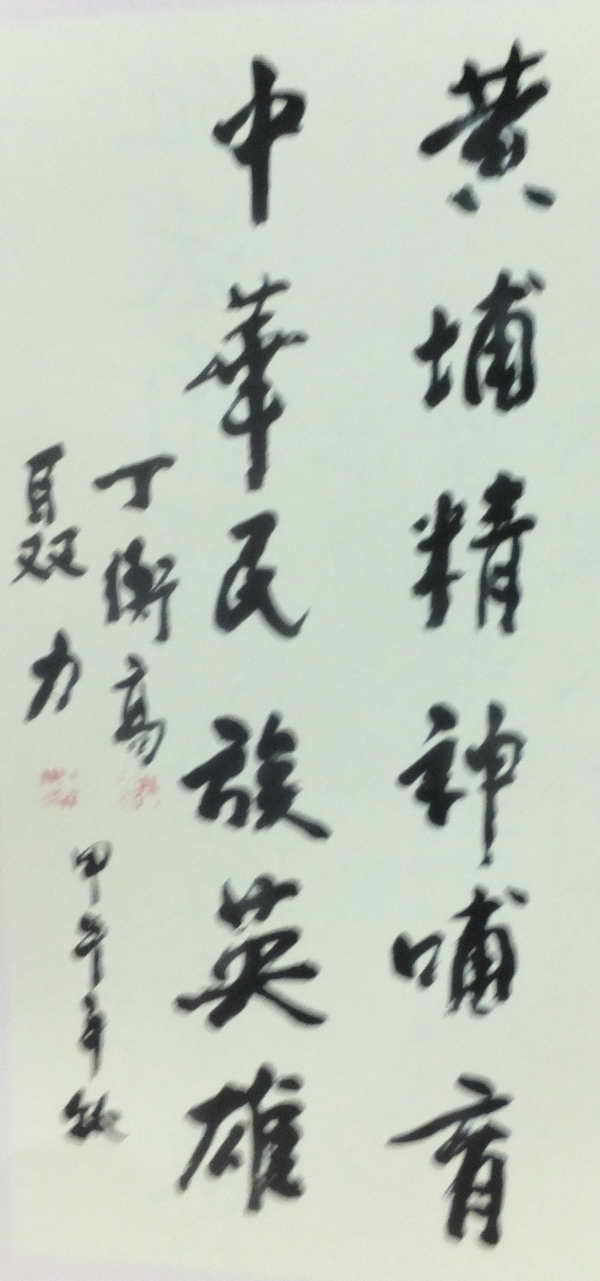 黄埔精神哺育
中華民族英雄
丁衡高
聂力
甲午年秋